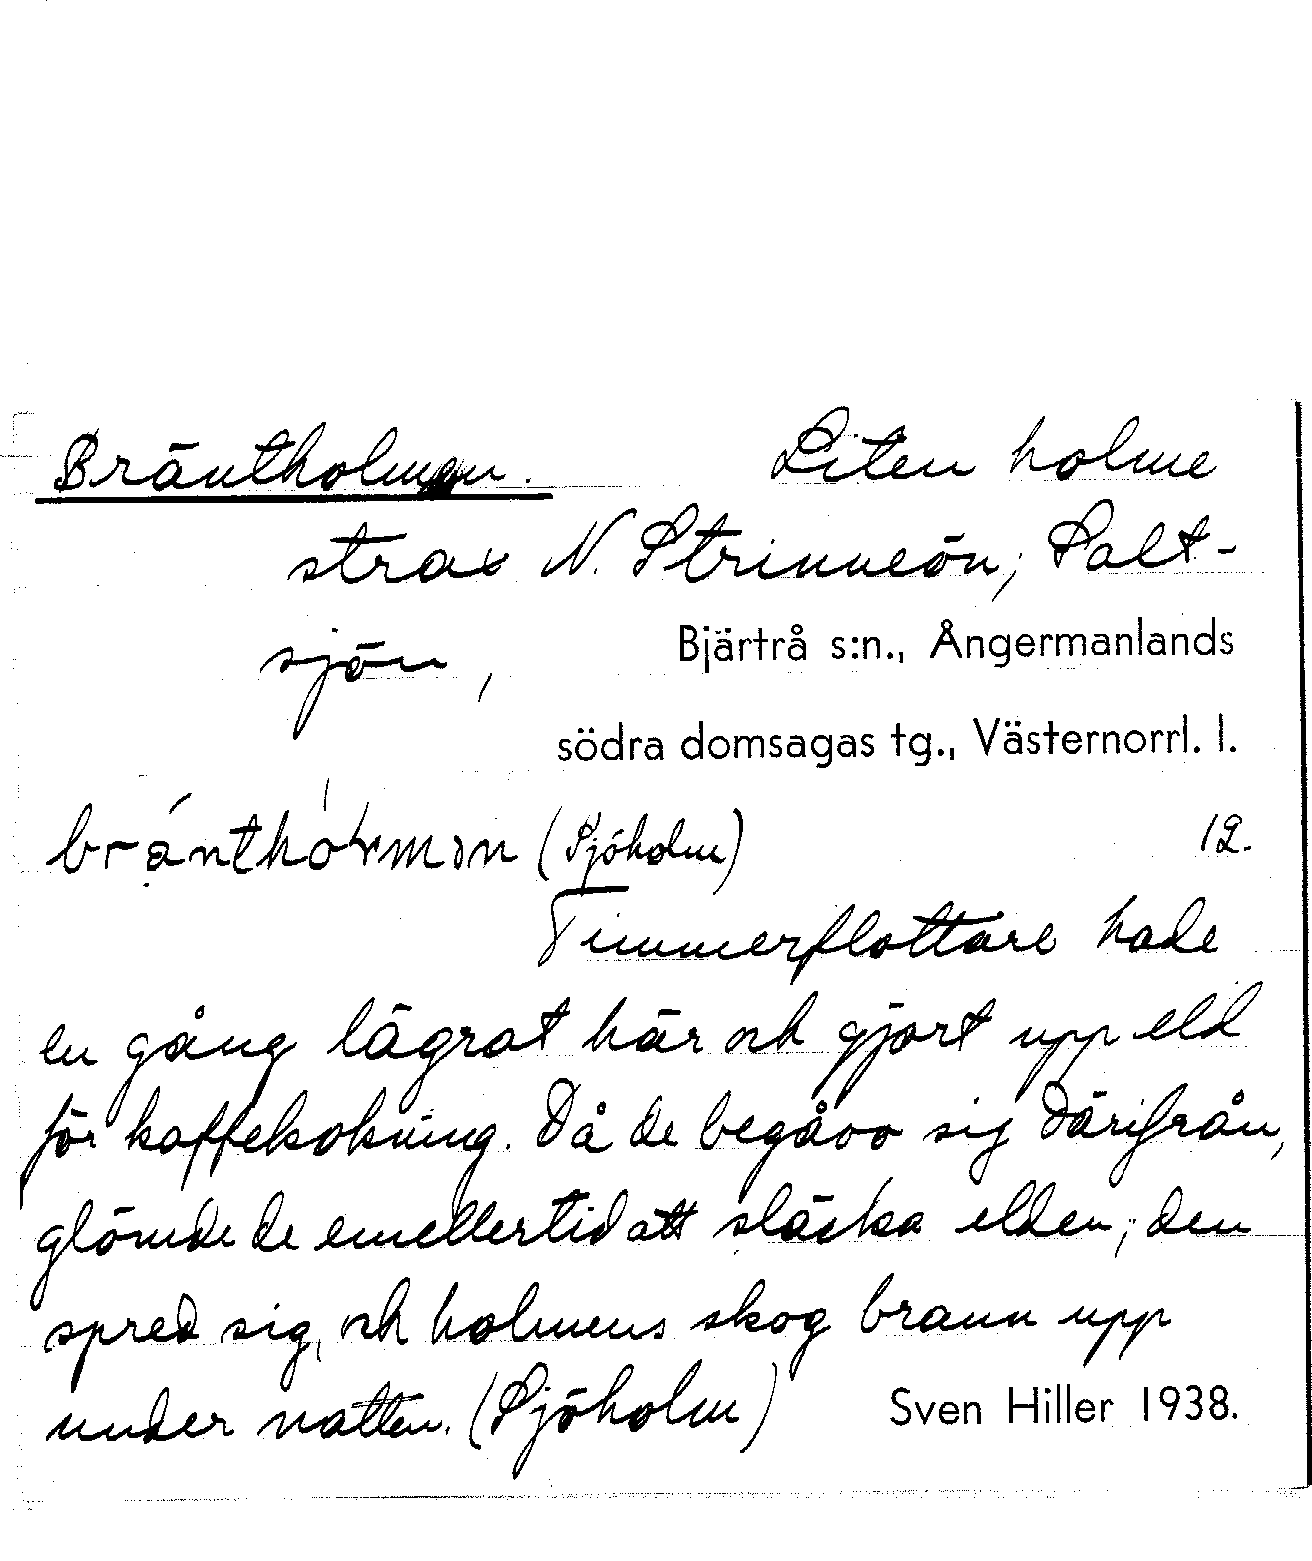 Bräntholmen. Liten holme
strax N. Strinneön, Salt-
sjön, Bjärtrå s:n., Ångermanlands
södra domsagas tg., Västernorrl. l.
(Sjöholm) 12.
Timmerflottare hade
en gång lägrat här och gjort upp eld
för kaffekokning. Då de begåvo sig därifrån,
glömde de emellertid att släcka elden; den
spred sig, och holmens skog brann upp
under natten. (Sjöholm) Sven Hiller 1938.